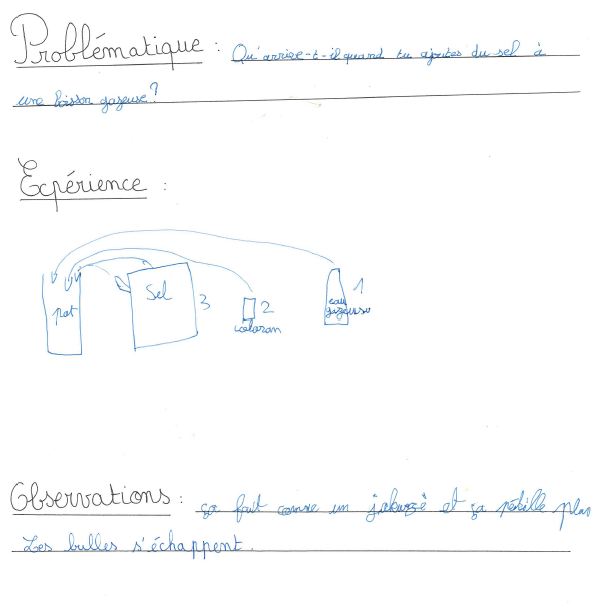 Problématique : Qu'arrive-t-il quand tu ajoutes du sel à
une boisson gazeuse ?
Expérience :
pot
Sel
3
2
coloran
1
eau
gazeuse
Observations : ça fait comme un jakuzzi et ça pétille plan
Les bulles s'échappent.